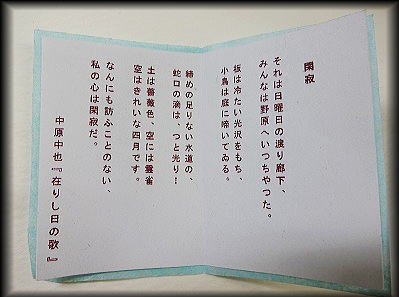 閑寂
それは日曜日の渡り廊下、
みんなは野原へいつちやつた。
板は冷たい光沢をもち、
小鳥は庭に啼いてゐる。
締めの足りない水道の、
蛇口の滴は、つと光り!
土は薔薇色、空には雲雀
空はきれいな四月です。
なんにも訪ふことのない、
私の心は閑寂だ。
中原中也『在りし日の歌』